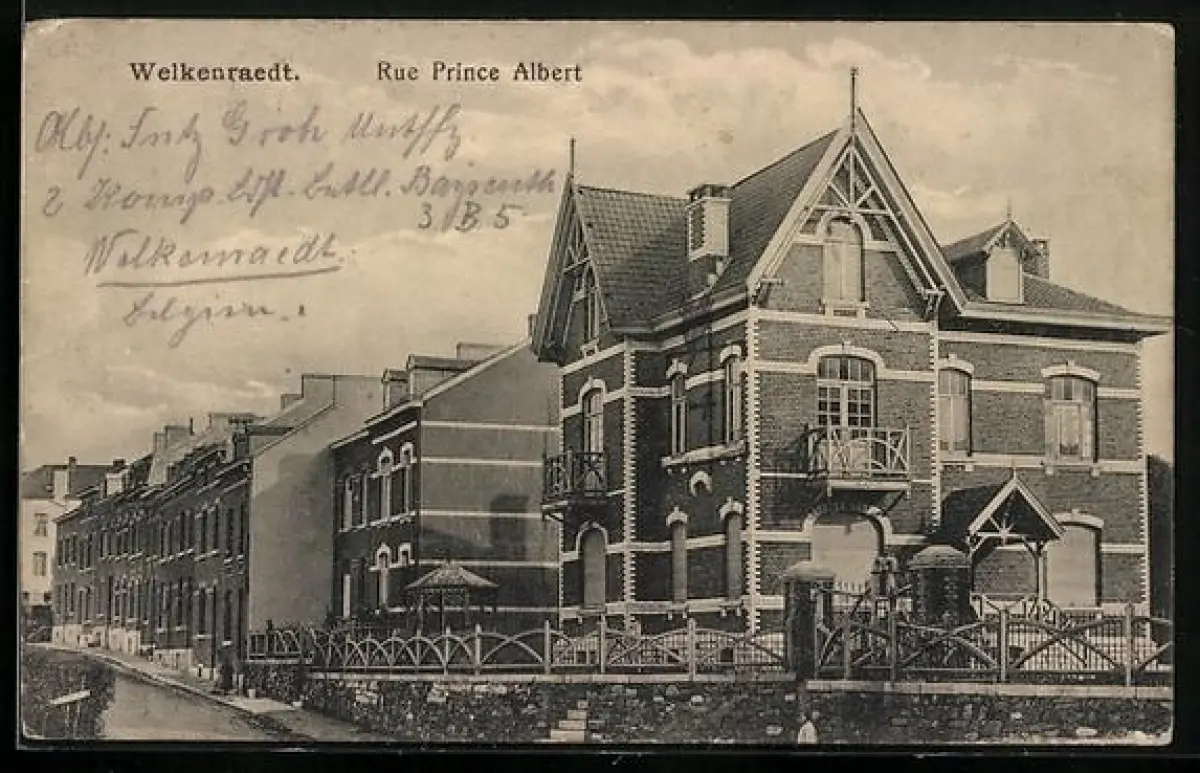 Welkenraedt. Rue Prince Albert
Abs: Fritz Groh Untffz
2 Komp. Ldst. Batl. Bayreuth
3. B. 5
Welkenraedt.
Belgien.